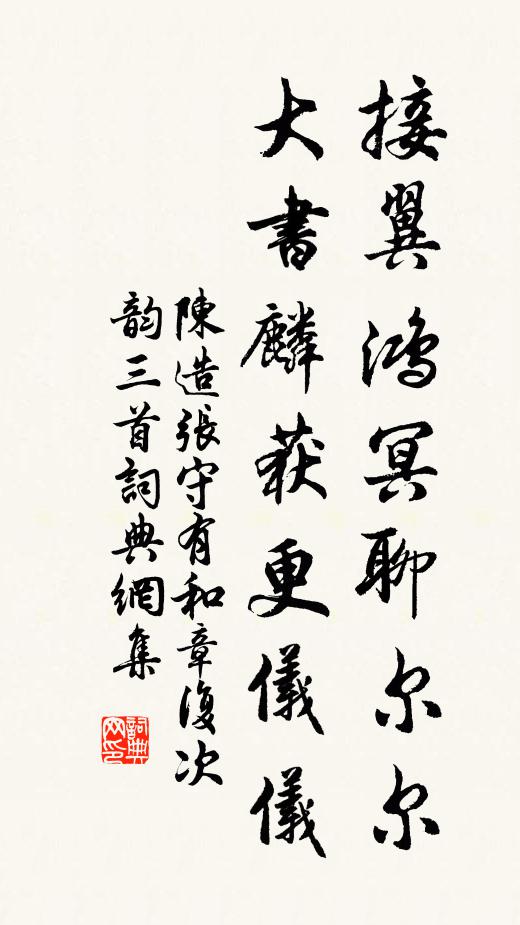 接翼鴻冥聊尔尔
大書麟获更儀儀
陳造張守有和章復次
韵三首詞典網集
詞典
网印